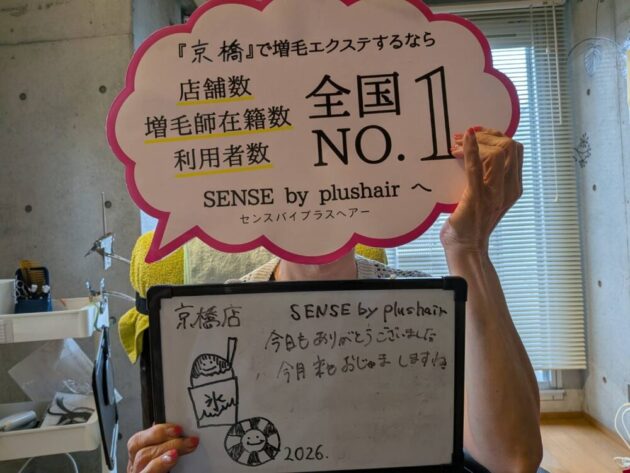 『京橋』で増毛エクステするなら
店舗数
増毛師在籍数
利用者数
全国
NO.1
SENSE by plushair へ
センスバイプラスヘアー
京橋店
SENSE by plushair
今日もありがとうございました
今月末もおじゃましますね
氷
2026.